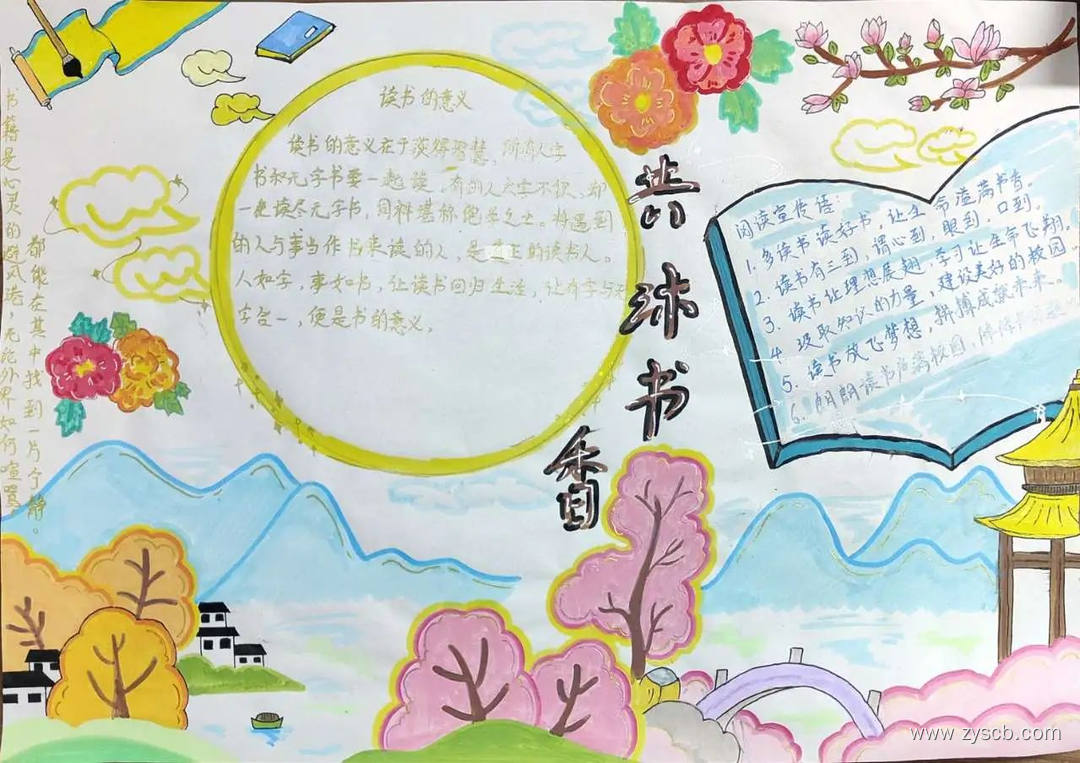 书籍是心灵的避风港,无论外界如何喧嚣
都能在其中找到一片宁静。
读书的意义
读书的意义在于获得智慧,所有人字
书和无字书要一起读,有的人
一些读尽无字书,同样堪称饱学之士。将遇到
的人与事当作书来读的人,是真正的读书人。
人如字,事如书,让读书回归生活,让有字与无
字合一,便是书的意义。
共沐书香
阅读宣传语:
1.多读书读好书,让生命溢满书香。
2.读书有三到,谓心到、眼到、口到。
3.读书让理想展翅,学习让生命飞翔。
4.汲取知识的力量,建设美好的校园
5.读书放飞梦想,拼搏成就未来。
6.朗朗读书声满校园,
www.zyscb.com